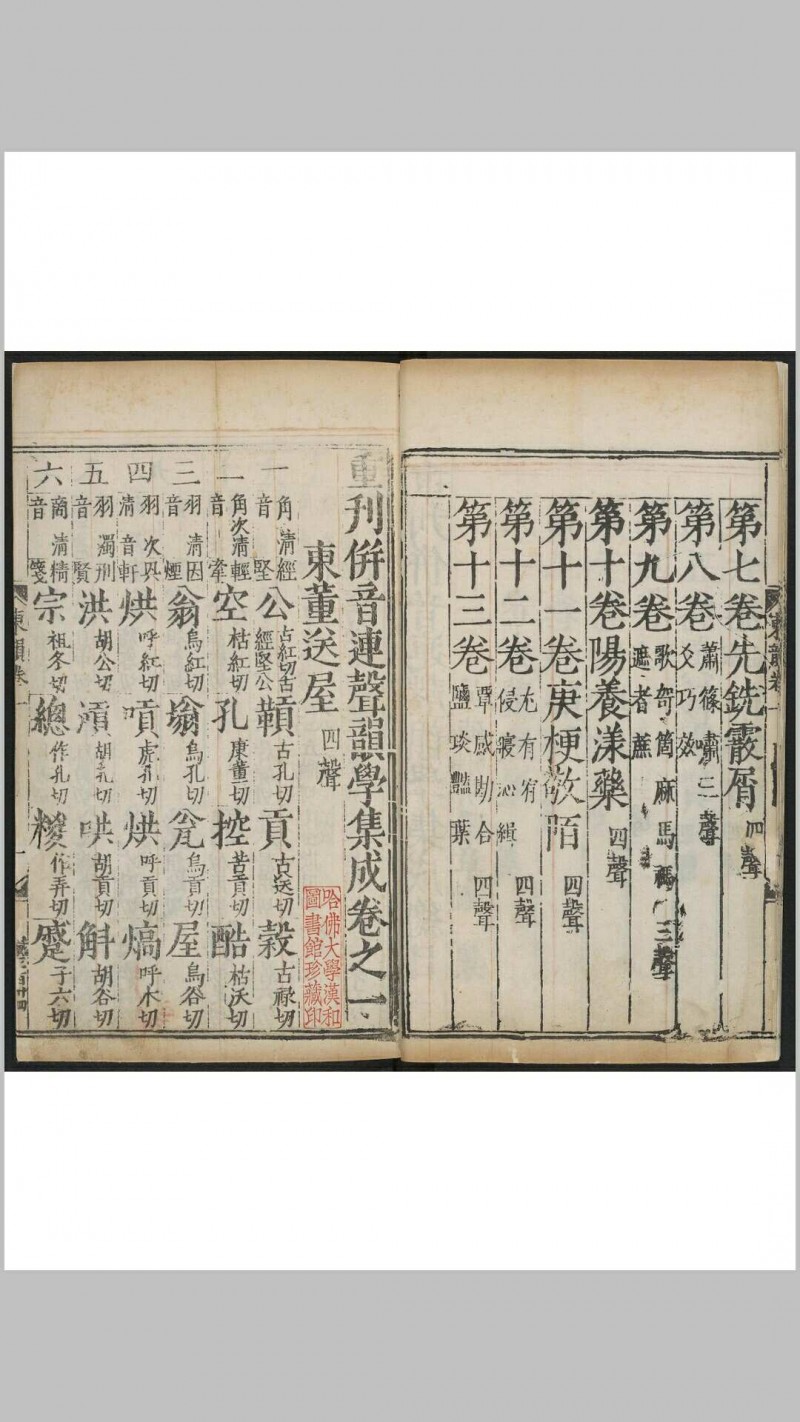 第七卷先銑霰屑四聲
第八卷蕭篠嘯爻巧效三聲
第九卷歌哿箇麻馬禡遮者蔗三聲
第十卷陽養漾藥四聲
第十一卷庚梗敬陌四聲
第十二卷尤有宥侵寢沁緝四聲
第十三卷覃感勘合鹽琰豔葉四聲
重刊併音連聲韻學集成卷之一
東董送屋四聲
一角清經音堅公古紅切古經堅公㔶古孔切貢古送切穀古祿切
二角次清輕音牽空枯紅切孔康董切控苦貢切酷枯沃切
三羽清因音煙翁烏紅切塕烏孔切瓮烏貢切屋烏谷切
四羽次清音軒烘呼紅切嗊虎孔切烘呼貢切熇呼木切
五羽濁刑音賢洪胡公切澒胡孔切哄胡貢切斛胡谷切
六商清精音箋宗祖冬切總作孔切糉作弄切蹙子六切
哈佛大學漢和
圖書館珍藏印
東韻卷一